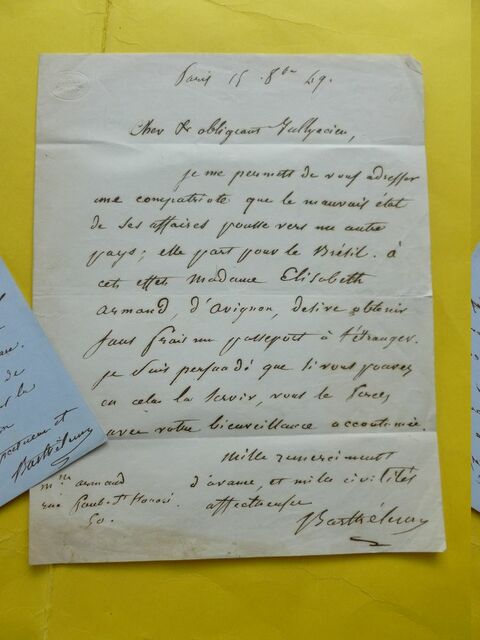 Paris 15 8bre 49.
Cher & obligeant
je me permets de vous adresser
une compatriote que le mauvais état
de ses affaires pousse vers un autre
pays; elle part pour le Brésil. à
cet effet Madame Elisabeth
armand, d'avignon, desire obtenir
sans frais un passeport à l'étranger.
je suis persuadé que si vous pouvez
en cela la servir, vous le ferez
avec votre bienveillance accoutumée.
Mille remerciments
d'avance, et mille civilités
affectueuses
Barthélemy
Mme armand
rue Saint-Honoré
50.
de
la
et
Barthélemy